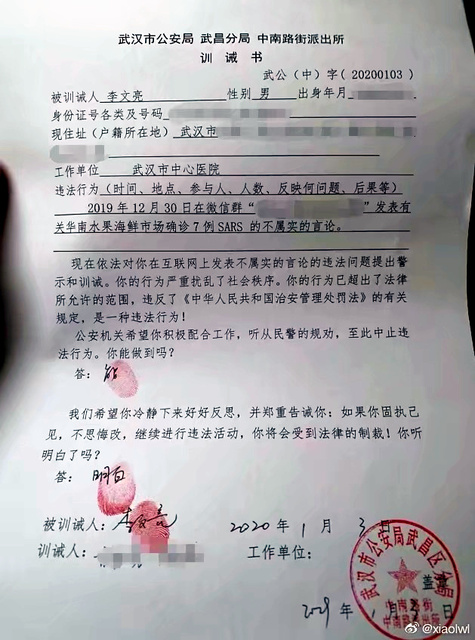 武汉市公安局 武昌分局 中南路街派出所
训 诫 书
武公（中）字（20200103）
被训诫人 李文亮 性别 男 出身年月
身份证号各类及号码
现住址（户籍所在地） 武汉市
工作单位 武汉市中心医院
违法行为（时间、地点、参与人、人数、反映何问题、后果等）
2019年12月30日在微信群“ ”发表有
关华南水果海鲜市场确诊7例SARS 的不属实的言论。
现在依法对你在互联网上发表不属实的言论的违法问题提出警
示和训诫。你的行为严重扰乱了社会秩序。你的行为已超出了法律
所允许的范围，违反了《中华人民共和国治安管理处罚法》的有关
规定，是一种违法行为！
公安机关希望你积极配合工作，听从民警的规劝，至此中止违
法行为。你能做到吗？
答：能
我们希望你冷静下来好好反思，并郑重告诫你：如果你固执己
见，不思悔改，继续进行违法活动，你将会受到法律的制裁！你听
明白了吗？
答：明白
被训诫人：李文亮 2020年1月3日
训诫人： 工作单位：
武汉市公安局武昌区分局
中南路街派出所
盖章
年1月3日
@xiaolwl